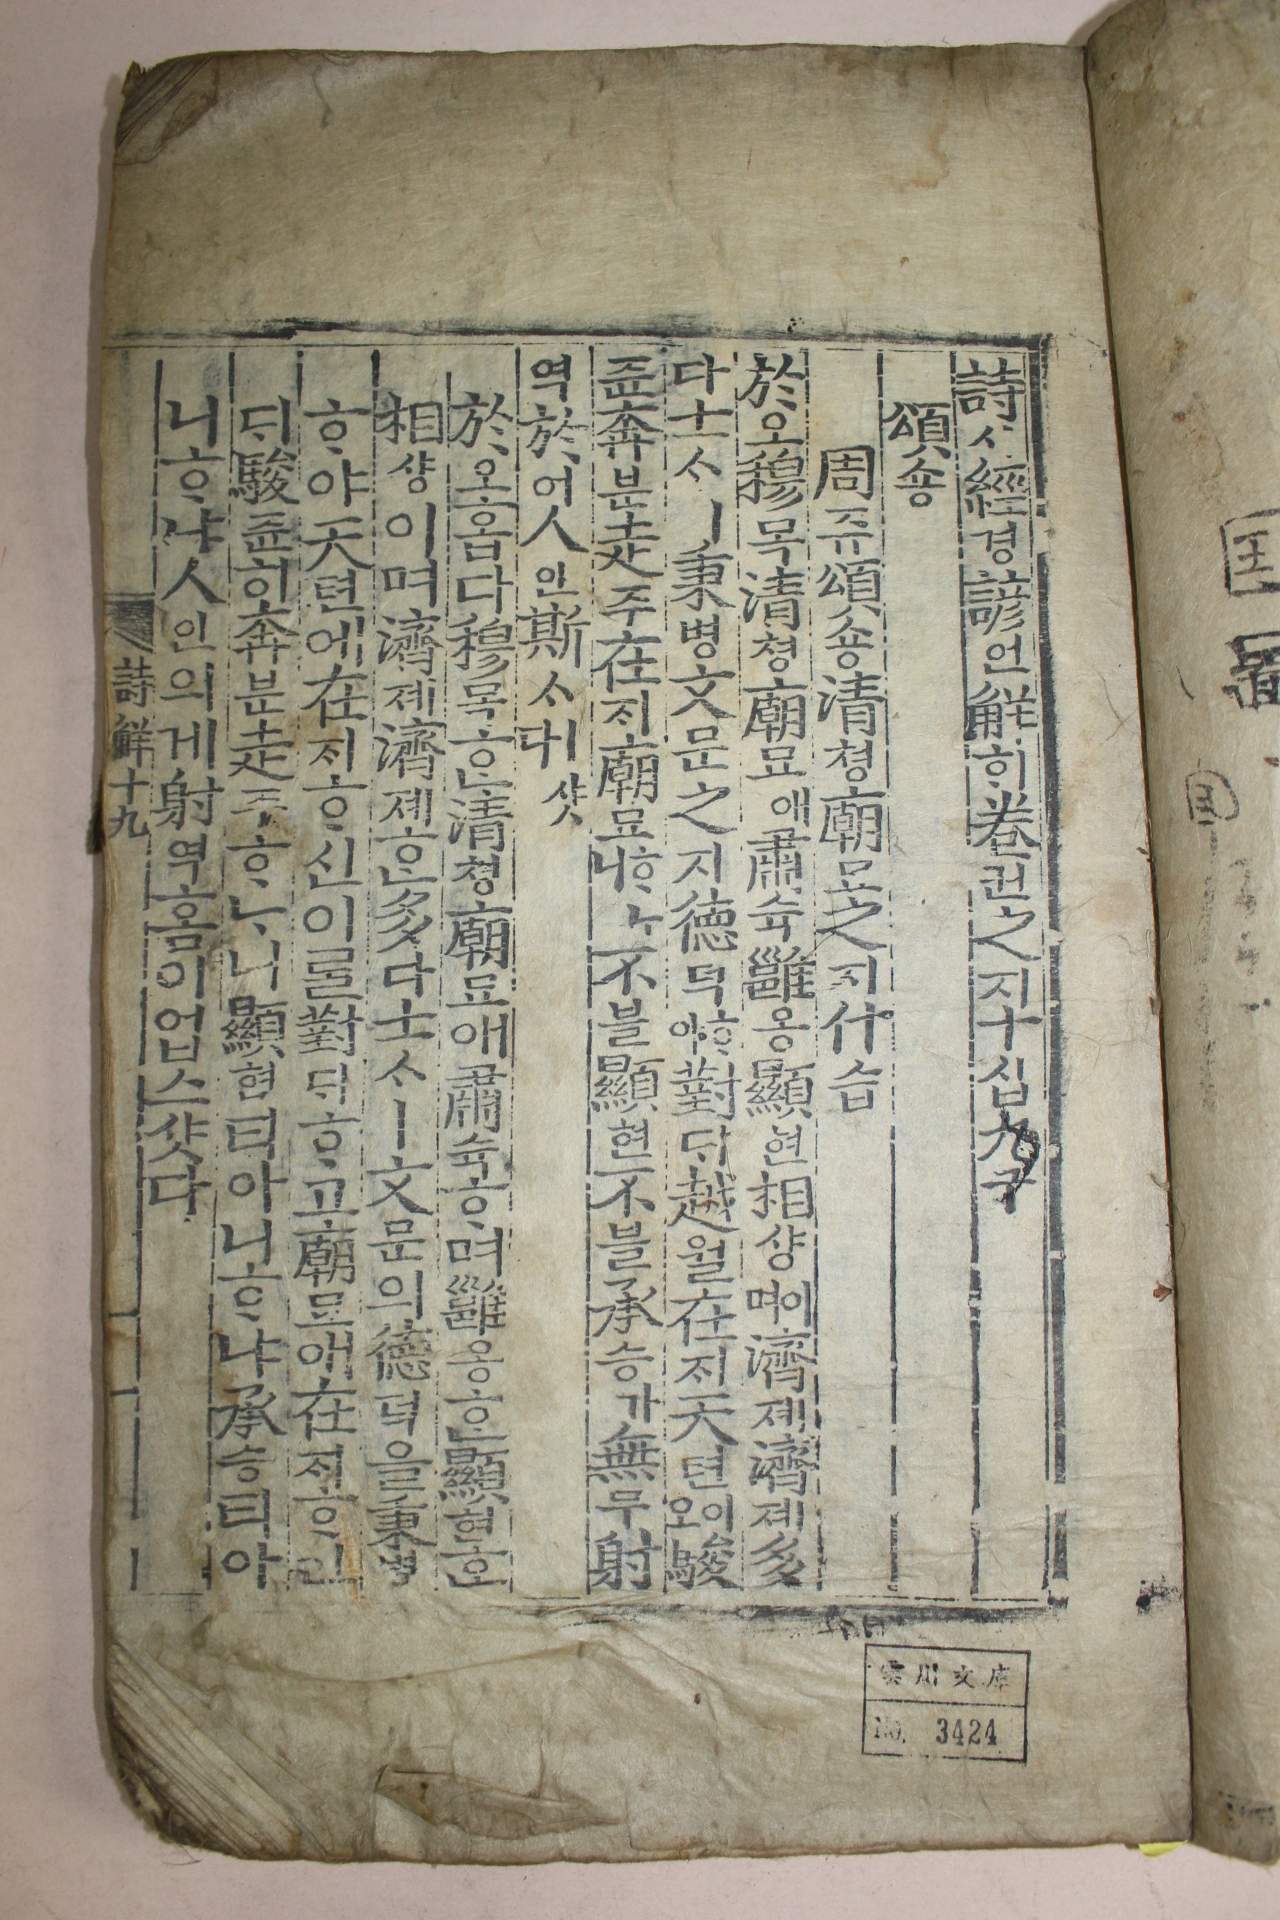 詩시經경諺언解ᄒᆡ卷권之지十십九구
頌숑
周쥬頌숑淸쳥廟묘之지什습
於오穆목淸쳥廟묘애肅슉雝옹顯현相샹이며濟졔濟졔多
다士ᄉᆞㅣ秉병文문之지德덕ᄒᆞ야對ᄃᆡ越월在ᄌᆡ天텬이오駿
쥰奔분走주在ᄌᆡ廟묘ᄒᆞᄂᆞ니不블顯현不블承승가無무射
역於어人인斯ᄉᆞㅣ샷다
於오홉다穆목ᄒᆞᆫ淸쳥廟묘애肅슉ᄒᆞ며雝옹ᄒᆞᆫ顯현ᄒᆞᆫ
相샹이며濟졔濟졔ᄒᆞᆫ多다士ᄉᆞㅣ文문의德덕을秉병
ᄒᆞ야天텬에在ᄌᆡᄒᆞ신이ᄅᆞᆯ對ᄃᆡᄒᆞ고廟묘애在ᄌᆡᄒᆞ신
ᄃᆡ駿쥰히奔분走주ᄒᆞᄂᆞ니顯현티아니ᄒᆞ냐承승티아
니ᄒᆞ냐人인의게射역홈이업스샷다
詩解十九
雲川文庫
No. 3424